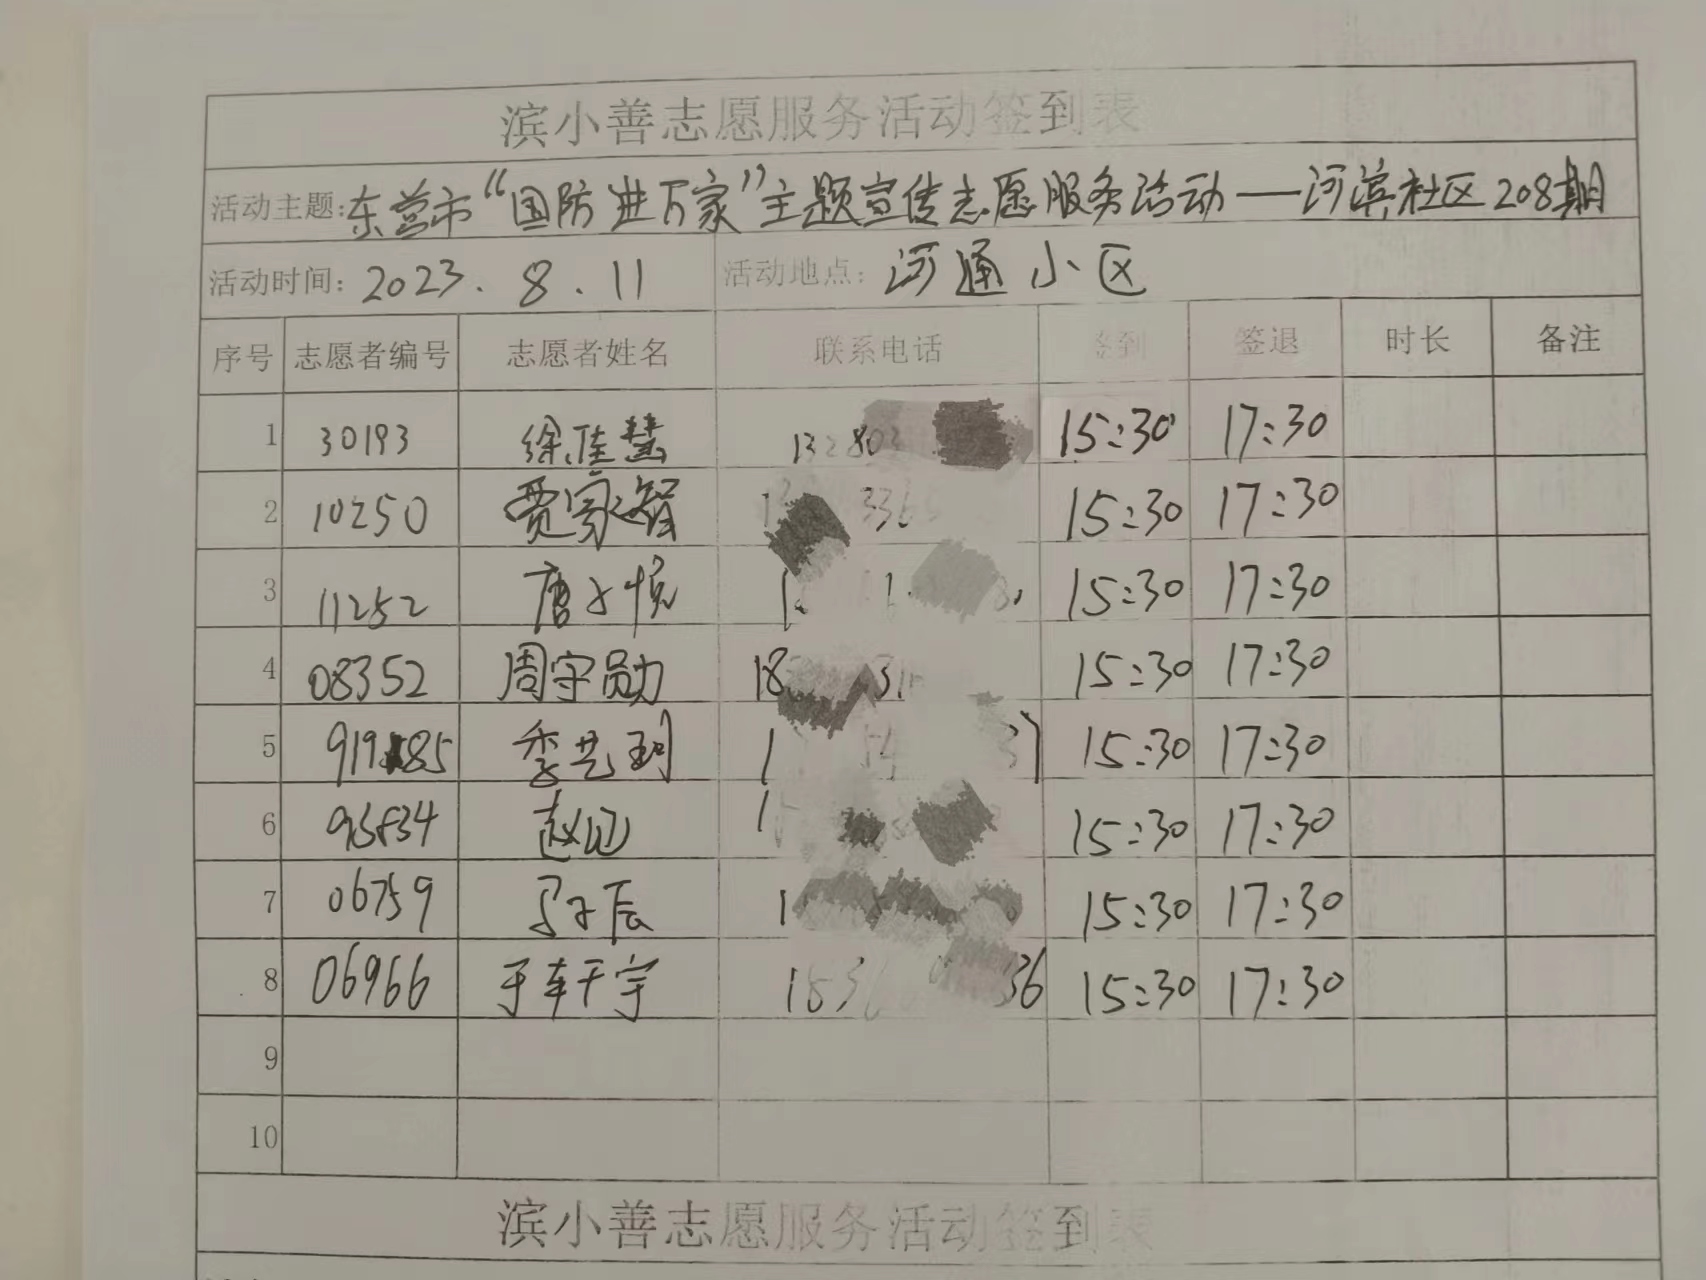 滨小善志愿服务活动签到表
活动主题:东营市“国防进万家”主题宣传志愿服务活动——河滨社区208期
活动时间: 2023.8.11 活动地点: 河通小区
序号 志愿者编号 志愿者姓名 联系电话 签到 签退 时长 备注
1 30193 徐佳慧 15:30 17:30
2 10250 贾家智 15:30 17:30
3 11252 唐子悦 15:30 17:30
4 08352 周宇勋 15:30 17:30
5 李艺珂 15:30 17:30
6 15:30 17:30
7 06759 15:30 17:30
8 06966 于车干宇 15:30 17:30
9
10
滨小善志愿服务活动签到表